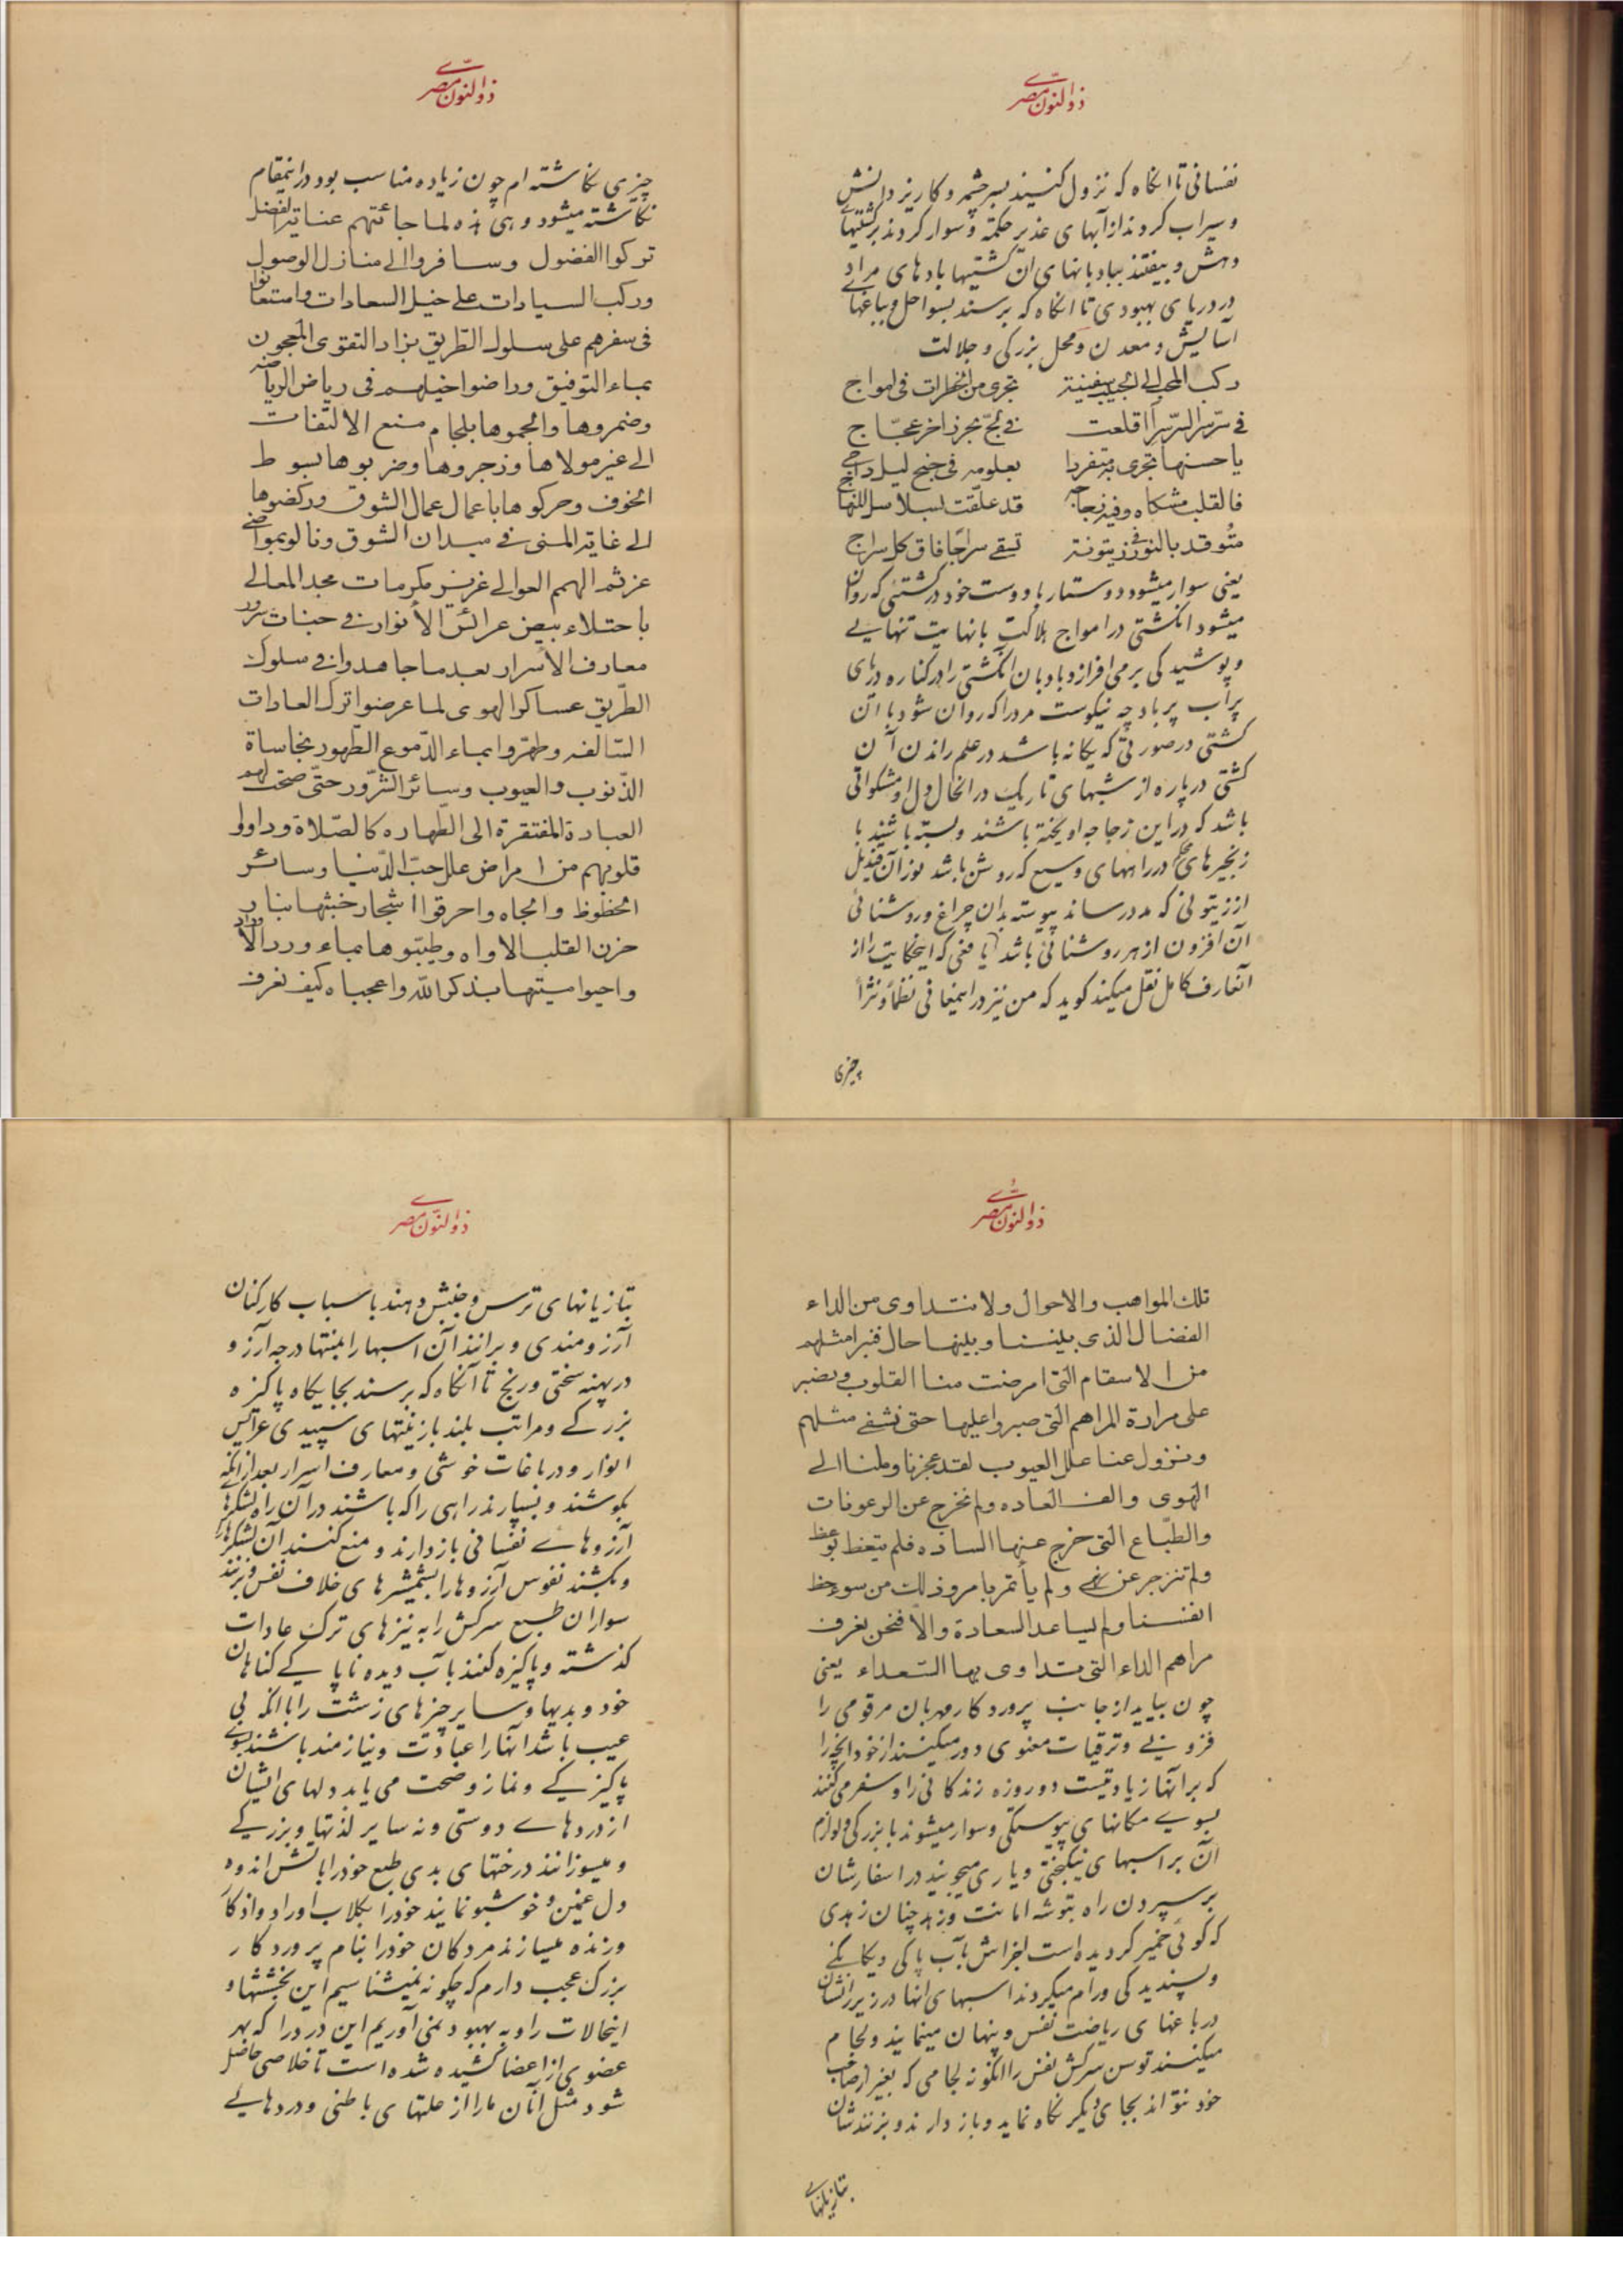 ذوالنون مصری
نفسانی تا انکاه که نزول کنیند بسر چشمه و کاریز دانش
و سیراب کردند از آبهای غدیر حکمة و سوار کردند بر کشتیهای
دهش و بیفتند ببادبانهای آن کشتیها بادهای مراد
در دریای بهبودی تا انکاه که برسند بسواحل و بباغهای
آسایش و معدن و محل بزرکی و جلالت
رکب المحب الی الحبیب سفینة تجری من الخطرات فی امواج
فی سر سر السر سرا اقلعت فی لج بحر زاخر عجاج
یا حسنها تجری به متفردا بعلومه فی جنح لیل داجی
فالقلب مشکاه وفیه زجاجه قد علقت بسلاسل
متوقد بالنور فی زیتونة تسقی سراجا فاق کل سراج
یعنی سوار میشود دوستار با دوست خود در کشتئی که روان
میشود انکشتی در امواج هلاکت با نهایت تنهایی
و پوشیدکی برمی افرازد بادبان انکشتی را در کناره دریای
پر آب پر باد چه نیکوست مردرا که روان شود با آن
کشتی در صورتی که یکانه باشد در علم راندن آن
کشتی در پاره از شبهای تاریک در انحال دل او مشکواتی
باشد که در این زجاجه اویخته باشند و بسته باشند با
زنجیرهای محکم در راههای وسیع که روشن باشد نور آن قندیل
از زیتونی که مدد رساند پیوسته بدان چراغ و روشنائی
آن افزون از هر روشنائی باشد یافعی که اینحکایت را از
آنعارف کامل نقل میکند کوید که من نیز در اینمعانی نظماً و نثراً
چیزی
ذوالنون مصری
چیزی نکاشته ام چون زیاده مناسب بود در اینمقام
نکاشته میشود و هی هذه لما جائتهم عنایة الفضل
ترکوا الفضول وسافروا الی منازل الوصول
ورکب السیادات علی خیل السعادات وامتعانوا
فی سفرهم علی سلوک الطریق بزاد التقوی المعجون
بماء التوفیق وراضوا خیلهم فی ریاض الریاضه
وضمروها والجموها بلجام منع الالتفات
الی غیر مولاها وزجروها وضربوها بسوط
الخوف وحرکوها باعمال عمال الشوق ورکضوها
الی غایة المنی فی میدان الشوق ونالو بمواضی
عزثم الهمم العوالی غرر مکرمات مجد المعالی
باجتلاء بیض عرائس الأنوار فی جنات سرور
معارف الأسرار بعد ما جاهدوا فی سلوک
الطریق عساکر الهوی لما عرضوا ترک العادات
السالفه وطهروا بماء الدموع الطهور نجاساة
الذنوب والعیوب وسائر الشرور حتی صحت لهم
العبادة المفتقرة الی الطهاره کالصلاة وداووا
قلوبهم من امراض علل حب الدنیا وسائر
الحظوظ والجاه واحرقوا اشجار خبثها بنار
حزن القلب الاواه وطیبوها بماء ورد الأوراد
واحیوا میتها بذکر الله واعجباه کیف نعرف
ذوالنون مصری
تلک المواهب والاحوال ولا نتداوی من الداء
الفضال الذی بیننا وبینها حال فنبرا مثلهم
من الاسقام التی امرضت منا القلوب ونصبر
علی مرارة المراهم التی صبروا علیها حتی نشفی مثلهم
ونزول عنا علل العیوب لقد عجزنا وملنا الی
الهوی والف العاده ولم نخرج عن الرعونات
والطباع التی خرج عنها الساده فلم نتعظ بوعظ
ولم ننزجر عن نهی ولم یأتمر بامر وذلک من سوء حظ
انفسنا ولم یساعد السعادة والا فنحن نعرف
مراهم الداء التی یتداوی بها السعداء یعنی
چون بیاید از جانب پروردکار مهربان مرقومی را
فزونی و ترقیات معنوی دور میکنیند از خود انچه را
که بر آنها زیادتیست دو روزه زندکانی را و سفر می کنند
بسوی مکانهای پیوستکی و سوار میشوند با بزرکی و لوازم
آن بر اسبهای نیکبختی و یاری میجویند در اسفارشان
بر سپردن راه بتوشه امانت و زهد چنان زهدی
که کوئی خمیر کردیده است اجزاش بآب پاکی و یکانکی
و پسندیدکی و رام میکردند اسبهای انها در زیر رانشان
در باغهای ریاضت نفس و پنهان مینمایند و لجام
میکنیند توسن سرکش نفس را انکونه لجامی که بغیر از صاحب
خود نتواند بجای دیکر نکاه نماید و باز دارند و بزنندشان
بتازیانهای
ذوالنون مصری
بتازیانهای ترس و جنبش دهند با سباب کارکنان
آرزومندی و برانند آن اسبها را بمنتها درجه آرزو
در پهنه سختی و رنج تا آنکاه که برسند بجایکاه پاکیزه
بزرکی و مراتب بلند بازینتهای سپیدی عرایس
انوار و در باغات خوشی و معارف اسرار بعد از انکه
بکوشند و بسپارند راهی را که باشند در آن راه لشکرهای
آرزوهای نفسانی باز دارند و منع کنند آن لشکرها را
و بکشند نفوس آرزوها را بشمشیرهای خلاف نفس و بزنند
سواران طبع سرکش را به نیزهای ترک عادات
کذشته و پاکیزه کنند بآب دیده ناپاکی کناهان
خود و بدیها و سایر چیزهای زشت را با انکه بی
عیب باشد انها را عبادت و نیازمند باشند بسوی
پاکیزکی و نماز و صحت می یابد دلهای ایشان
از دردهای دوستی و نه سایر لذتها و بزرکی
و میسوزانند درختهای بدی طبع خود را باتش اندوه
دل غمین و خوشبو نمایند خود را بکلاب اوراد و اذکار
و زنده میسازند مردکان خود را بنام پروردکار
بزرک عجب دارم که چکونه نمیشناسیم این بخششها و
اینحالات را و به بهبود نمی آوریم این درد را که بهر
عضوی از اعضا کشیده شده است تا خلاصی حاصل
شود مثل آنان ما را از علتهای باطنی و دردهایی